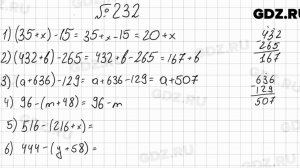 № 232
GDZ.RU
1) (35+x)-15 = 35+x-15 = 20+x
2) (432+b)-265 = 432+b-265 = 167+b
3) (a+636)-129 = a+636-129 = a+507
4) 96-(m+48) = 96-m
5) 516-(216+x) =
6) 444-(y+58) =
432
265
167
636
-129
507
GDZ.RU